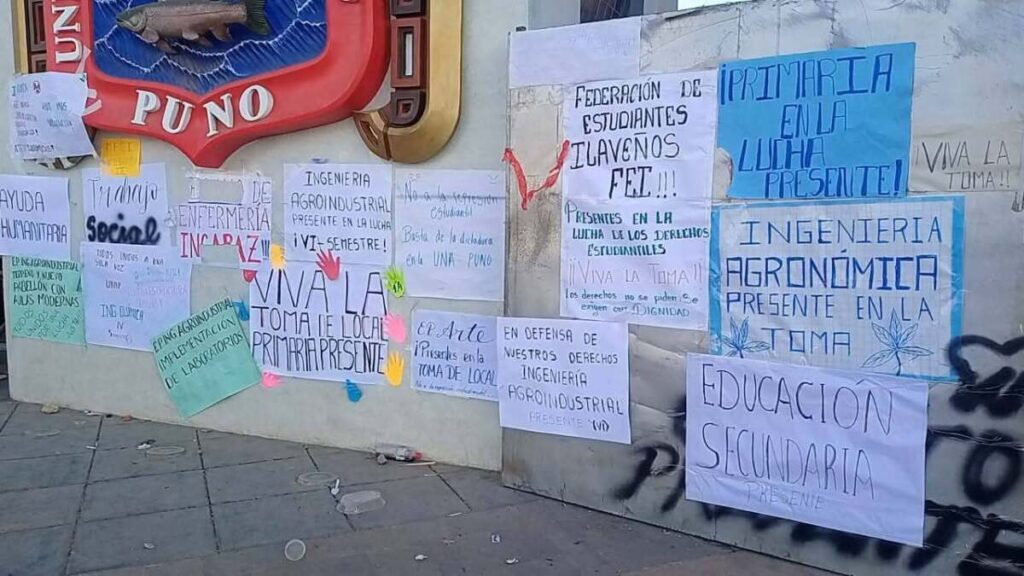 UN
PUNO
AYUDA
HUMANITARIA
Trabajo
Social
DE
ENFERMERÍA
INCAPAZ
INGENIERIA
AGROINDUSTRIAL
PRESENTE EN LA LUCHA
¡VII-SEMESTRE!
No a la represion
estudiantil
Basta de la dictadura
en la UNA PUNO
EP AGROINDUSTRIAL
TERRENO Y NUEVO
PABELLÓN CON
AULAS MODERNAS
TODOS UNIDOS A UNA
SOLA VOZ
ING QUIMICA
IV
EP AGROINDUSTRIAL
IMPLEMENTACIÓN
DE LABORATORIOS
VIVA LA
TOMA DE LOCAL
PRIMARIA PRESENTE
E.P. Arte
¡Presentes en la
TOMA DE LOCAL
EN DEFENSA DE
NUESTROS DERECHOS
INGENIERÍA
AGROINDUSTRIAL
PRESENTE
FEDERACIÓN DE
ESTUDIANTES
ILAVEÑOS
FEI!!!
PRESENTES EN LA
LUCHA DE LOS DERECHOS
ESTUDIANTILES
¡¡VIVA LA TOMA!!
los derechos no se piden se
exigen con DIGNIDAD
¡PRIMARIA
EN LA
LUCHA
PRESENTE!
¡VIVA LA
TOMA!!
INGENIERÍA
AGRONÓMICA
PRESENTE EN LA
TOMA
EDUCACIÓN
SECUNDARIA
PRESENTE